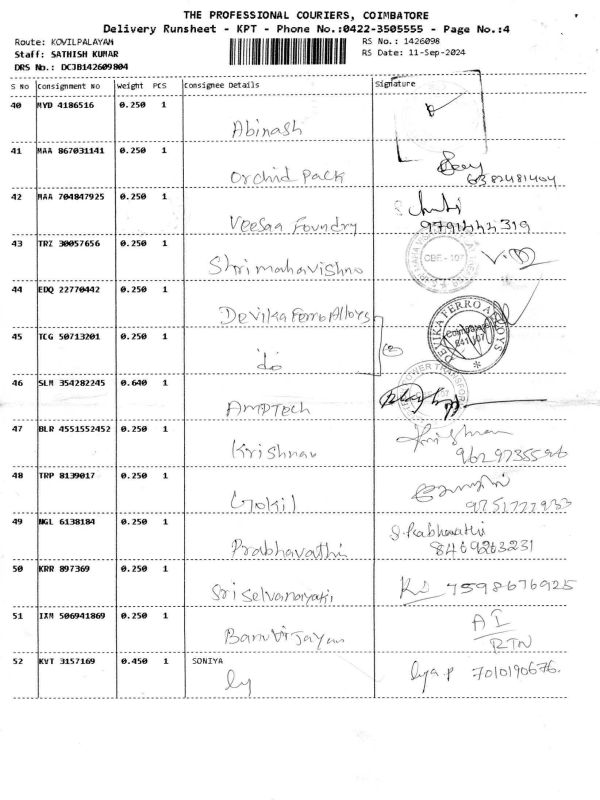 THE PROFESSIONAL COURIERS, COIMBATORE
Delivery Runsheet - KPT - Phone No.:0422-3505555 - Page No.:4
Route: KOVILPALAYAM
RS No.: 1426098
Staff: SATHISH KUMAR
RS Date: 11-Sep-2024
DRS No.: DCJB142609804
S No Consignment No Weight PCS Consignee Details Signature
40 MYD 4186516 0.250 1
Abinash
41 MAA 867031141 0.250 1
Orchid Pack
42 MAA 704847925 0.250 1
Veesaa Foundry
43 TRZ 30057656 0.250 1
Shrimahavishno
CBE - 107
44 EDQ 22770442 0.250 1
Devika Ferro Alloys
DEVIKA FERRO ALLOYS
Coimbatore
641 107
45 TCG 50713201 0.250 1
do
46 SLM 354282245 0.640 1
AMPTech
47 BLR 4551552452 0.250 1
Krishnan
48 TRP 8139017 0.250 1
Gokil
9751777933
49 NGL 6138184 0.250 1
Prabhavathi
S. Prabhavathi
8469263231
50 KRR 897369 0.250 1
Sri Selvanayaki
7598676925
51 IXM 506941869 0.250 1
Banu Vijayan
RTN
52 KVT 3157169 0.450 1 SONIYA
7010190676.